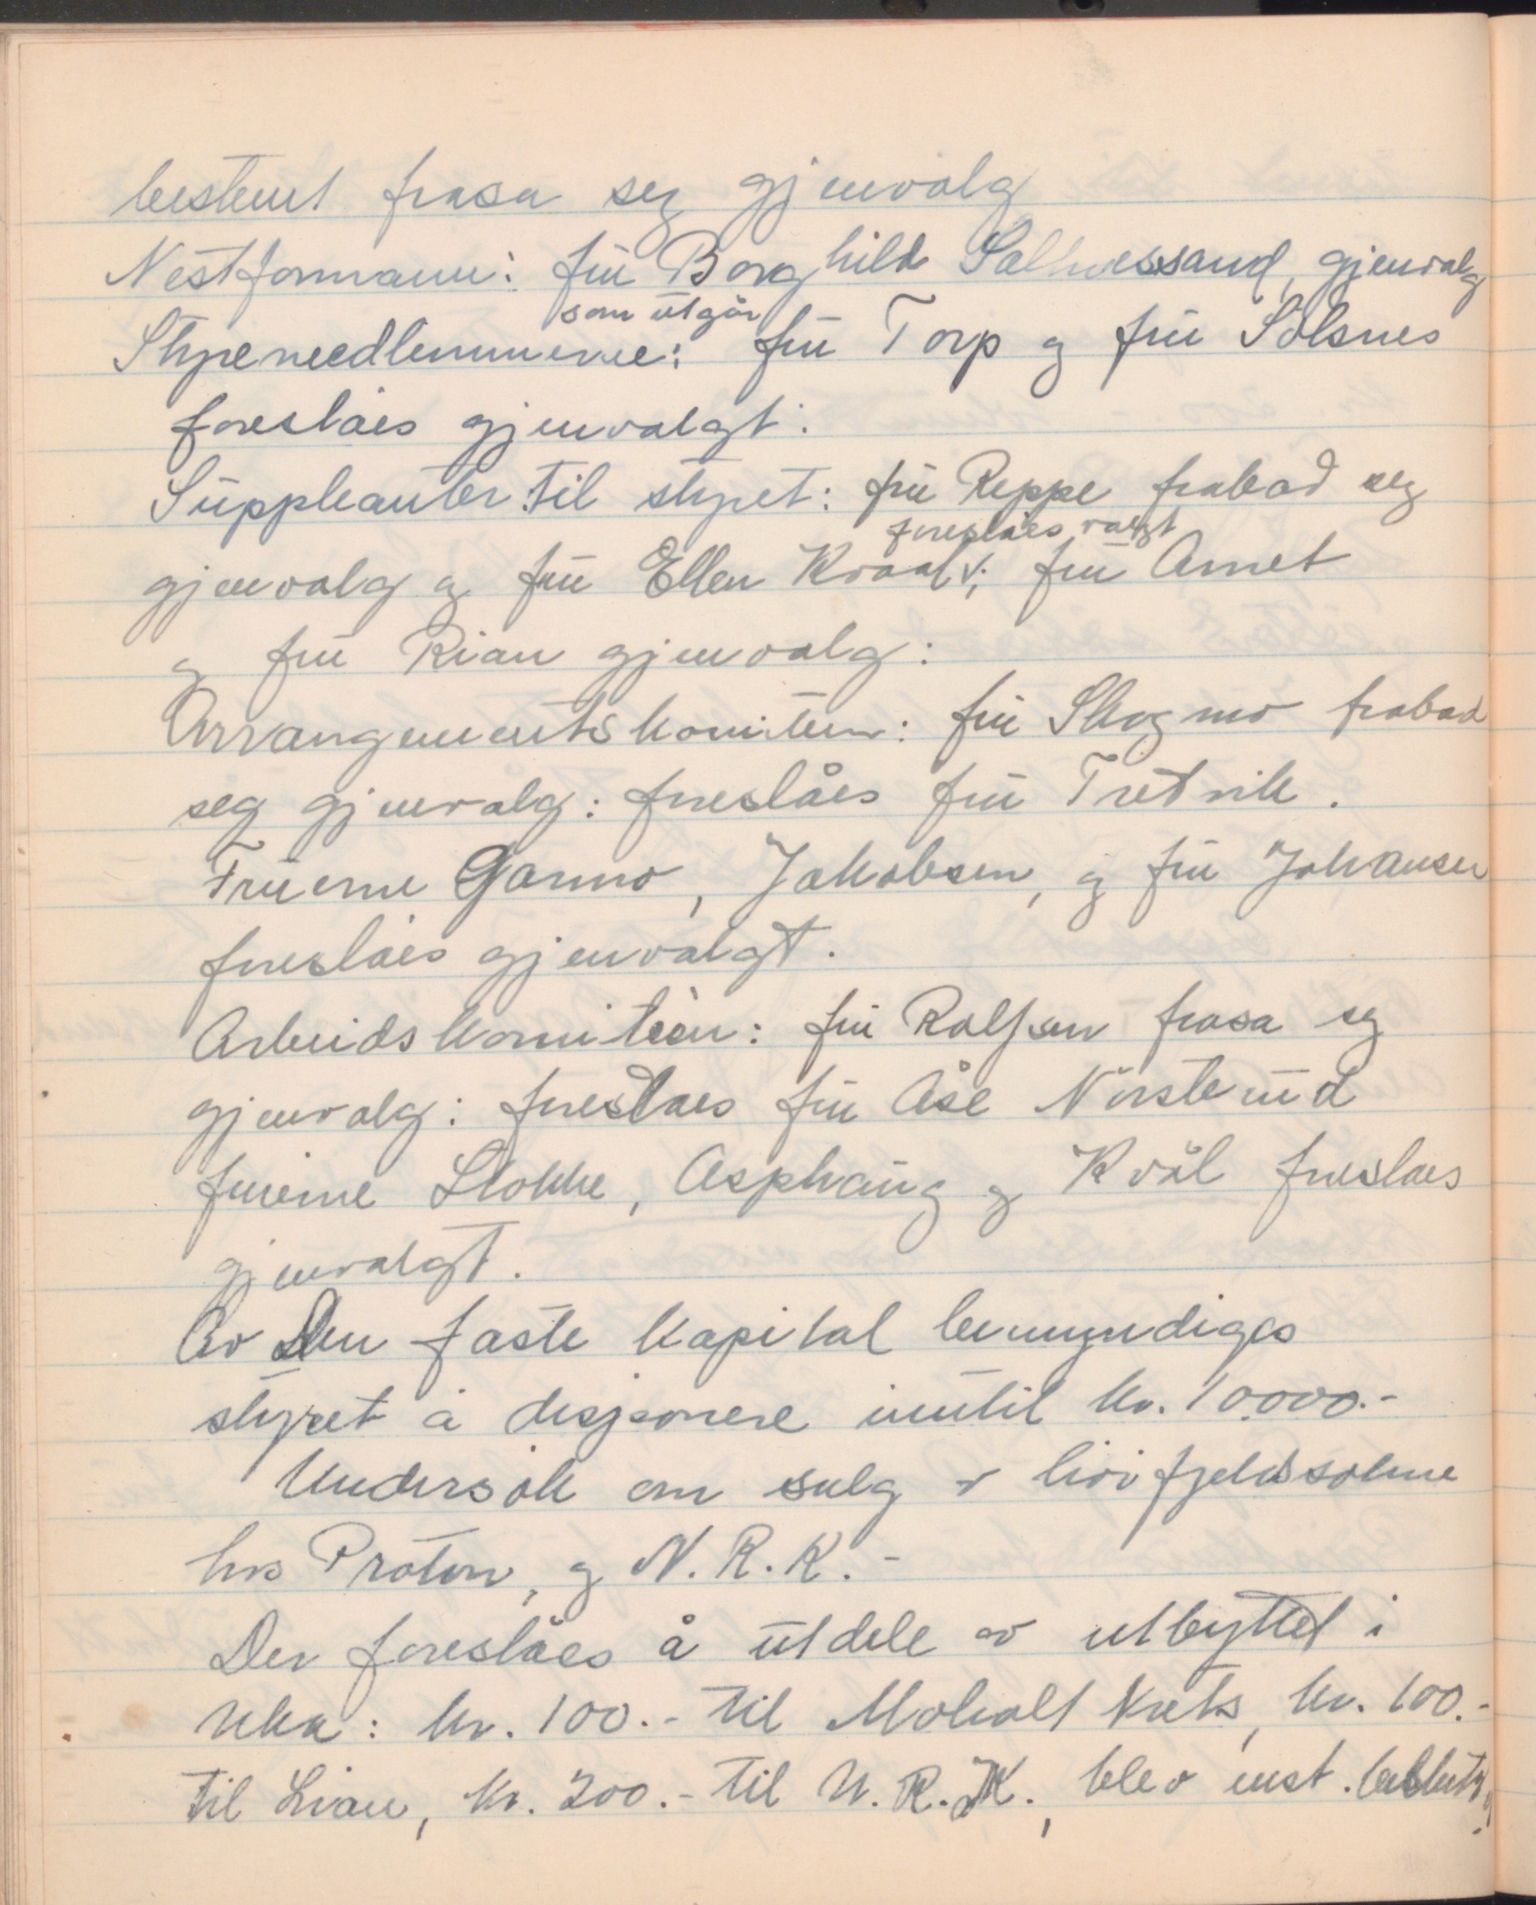 bestemt frasa seg gjenvalg
Nestformann: frú Borghild Salhvessand, gjenvalg
som útgår
Styremedlemmerne: frú Torp og frú Solsnes
foreslåes gjenvalgt:
Súppleanter til styret: frú Reppe frabad seg
foreslåes valgt
gjenvalg og frú Ellen; frú Arnet
og frú Rian gjenvalg:
Arrangementskomiteen: frú Skogmo frabad
seg gjenvalg: foreslåes frú Tretvik.
Frúerne Garmo, Jakobsen, og frú Johansen
foreslåes gjenvalgt.
Arbeidskomitéen: frú Rolfsen frasa seg
gjenvalg: foreslaes frú Åse Norsterúd
frúerne Stokke, Asphaúg og Kvål foreslaes
gjenvalgt.
Av Den faste kapital bemyndiges
styret å disponere inntil kr. 10.000.-
Undersøk om salg av livi fjeldsolene
hos Proton, og N.R.K.-
Der foreslåes å útdele av utbyttet i
Uka: kr. 100.- til Moholt kr. 100.-
til Lian, kr. 200.- til N.R.K., blev enst. besluttet